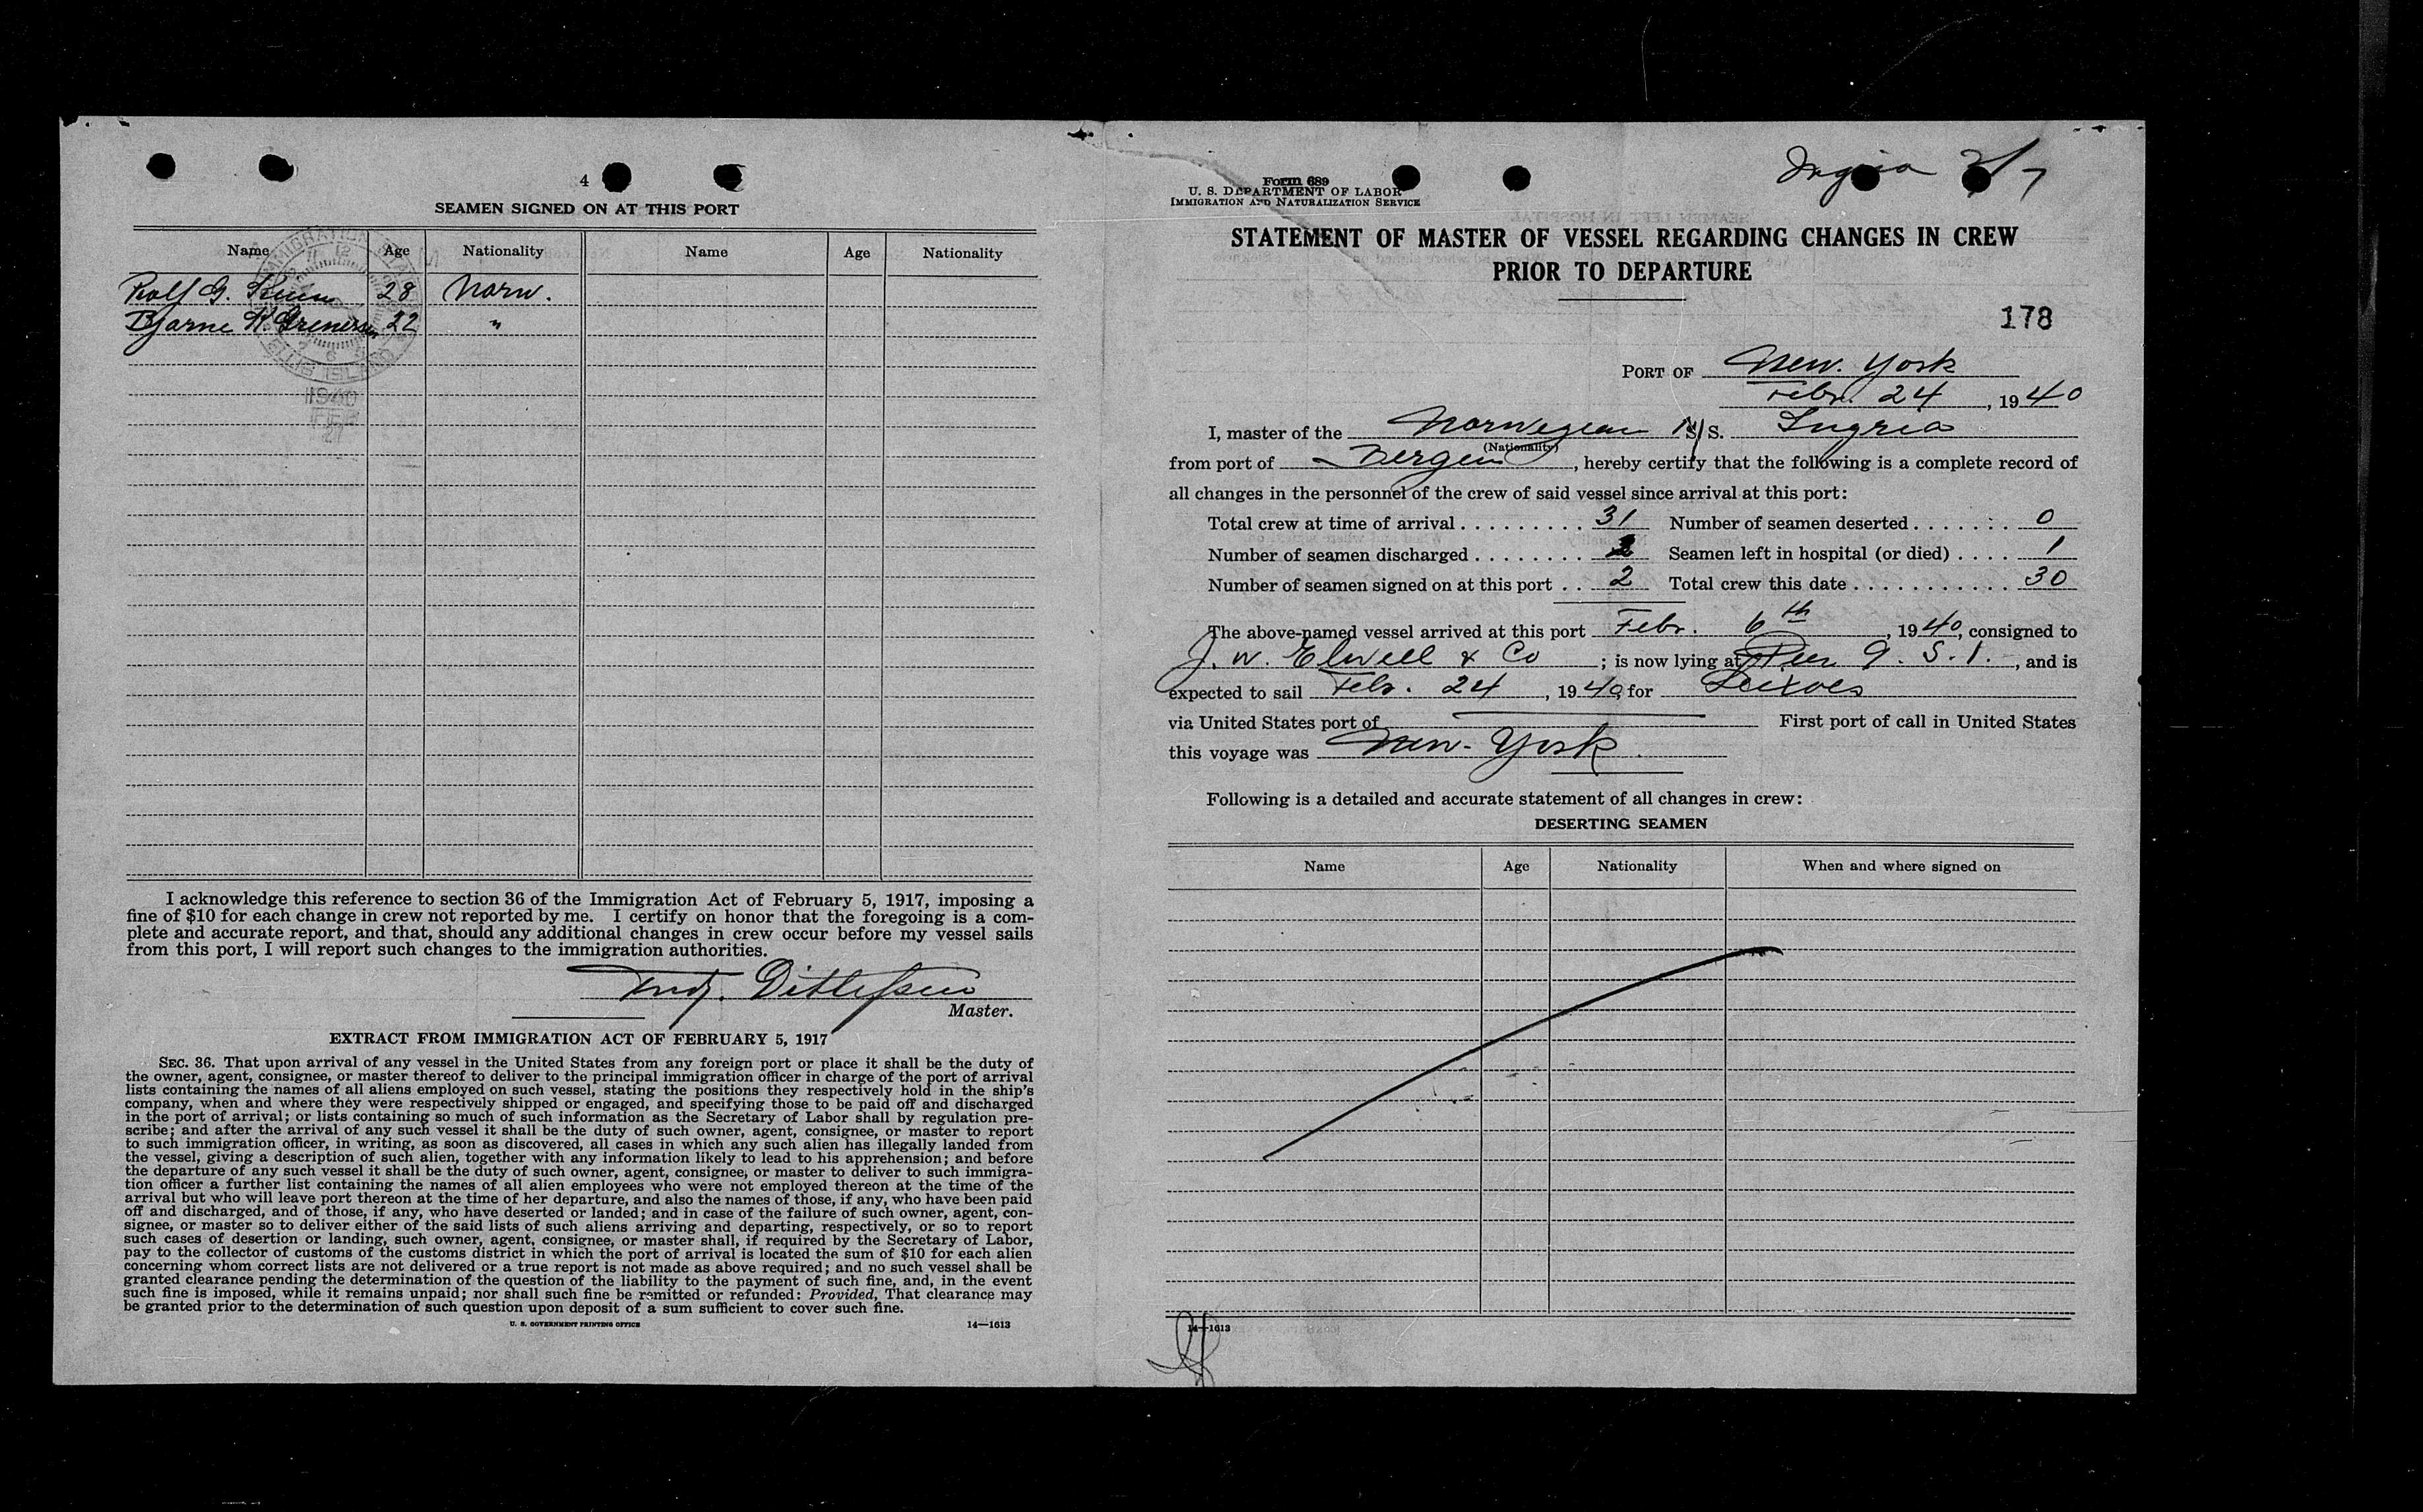 4
SEAMEN SIGNED ON AT THIS PORT
Name Age Nationality Name Age Nationality
Rolf G. 28 Norw.
Bjarne K. Grenersen 22 "
IMMIGRATION
ELLIS ISLAND
1940
FEB
27
I acknowledge this reference to section 36 of the Immigration Act of February 5, 1917, imposing a
fine of $10 for each change in crew not reported by me. I certify on honor that the foregoing is a com-
plete and accurate report, and that, should any additional changes in crew occur before my vessel sails
from this port, I will report such changes to the immigration authorities.
Ditlefsen
Master.
EXTRACT FROM IMMIGRATION ACT OF FEBRUARY 5, 1917
SEC. 36. That upon arrival of any vessel in the United States from any foreign port or place it shall be the duty of
the owner, agent, consignee, or master thereof to deliver to the principal immigration officer in charge of the port of arrival
lists containing the names of all aliens employed on such vessel, stating the positions they respectively hold in the ship's
company, when and where they were respectively shipped or engaged, and specifying those to be paid off and discharged
in the port of arrival; or lists containing so much of such information as the Secretary of Labor shall by regulation pre-
scribe; and after the arrival of any such vessel it shall be the duty of such owner, agent, consignee, or master to report
to such immigration officer, in writing, as soon as discovered, all cases in which any such alien has illegally landed from
the vessel, giving a description of such alien, together with any information likely to lead to his apprehension; and before
the departure of any such vessel it shall be the duty of such owner, agent, consignee, or master to deliver to such immigra-
tion officer a further list containing the names of all alien employees who were not employed thereon at the time of the
arrival but who will leave port thereon at the time of her departure, and also the names of those, if any, who have been paid
off and discharged, and of those, if any, who have deserted or landed; and in case of the failure of such owner, agent, con-
signee, or master so to deliver either of the said lists of such aliens arriving and departing, respectively, or so to report
such cases of desertion or landing, such owner, agent, consignee, or master shall, if required by the Secretary of Labor,
pay to the collector of customs of the customs district in which the port of arrival is located the sum of $10 for each alien
concerning whom correct lists are not delivered or a true report is not made as above required; and no such vessel shall be
granted clearance pending the determination of the question of the liability to the payment of such fine, and, in the event
such fine is imposed, while it remains unpaid; nor shall such fine be remitted or refunded: Provided, That clearance may
be granted prior to the determination of such question upon deposit of a sum sufficient to cover such fine.
U. S. GOVERNMENT PRINTING OFFICE 14—1613
Ingria 2/7
Form 689
U. S. DEPARTMENT OF LABOR
IMMIGRATION AND NATURALIZATION SERVICE
STATEMENT OF MASTER OF VESSEL REGARDING CHANGES IN CREW
PRIOR TO DEPARTURE
178
PORT OF New. York
Febr. 24, 1940
I, master of the Norwegian S/S. Ingria
(Nationality)
from port of Bergen, hereby certify that the following is a complete record of
all changes in the personnel of the crew of said vessel since arrival at this port:
Total crew at time of arrival . . . . . . . . . 31 Number of seamen deserted . . . . . . . 0
Number of seamen discharged . . . . . . . . 2 Seamen left in hospital (or died) . . . . 1
Number of seamen signed on at this port . . 2 Total crew this date . . . . . . . . . . . . 30
The above-named vessel arrived at this port Febr. 6th, 1940, consigned to
J. W. Elwell & Co ; is now lying at Pier 9. S. I., and is
expected to sail Febr. 24, 1940, for Leixoes
via United States port of First port of call in United States
this voyage was New-York.
Following is a detailed and accurate statement of all changes in crew:
DESERTING SEAMEN
Name Age Nationality When and where signed on
14—1613